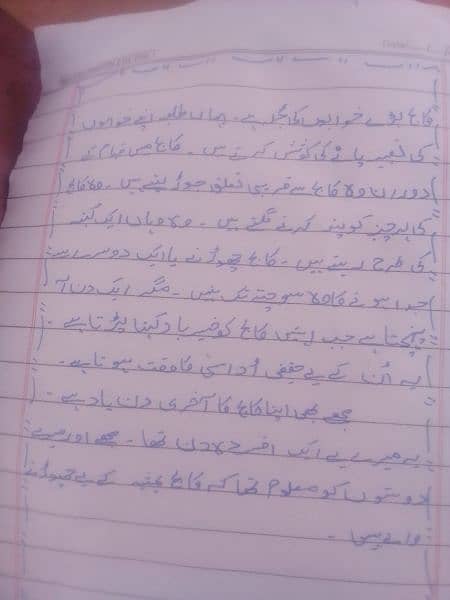 کالج بڑے خوابوں کی جگہ ہے۔ یہاں طلبہ اپنے خوابوں
کی تعبیر پانے کی کوشش کرتے ہیں۔ کالج میں قیام کے
دوران وہ کالج سے قریبی تعلق جوڑ لیتے ہیں۔ وہ کالج
کی ہر چیز کو پسند کرنے لگتے ہیں۔ وہ وہاں ایک کنبے
کی طرح رہتے ہیں۔ کالج چھوڑنے یا ایک دوسرے سے
جدا ہونے کا وہ سوچتے تک نہیں۔ مگر ایک دن آ
پہنچتا ہے جب انہیں کالج کو خیر باد کہنا پڑتا ہے۔
یہ اُن کے لیے حقیقی اُداسی کا وقت ہوتا ہے۔
مجھے بھی اپنا کالج کا آخری دن یاد ہے۔
یہ میرے لیے ایک افسردہ دن تھا۔ مجھے اور میرے
دوستوں کو معلوم تھا کہ کالج ہمیشہ کے لیے چھوڑنے
والے ہیں۔